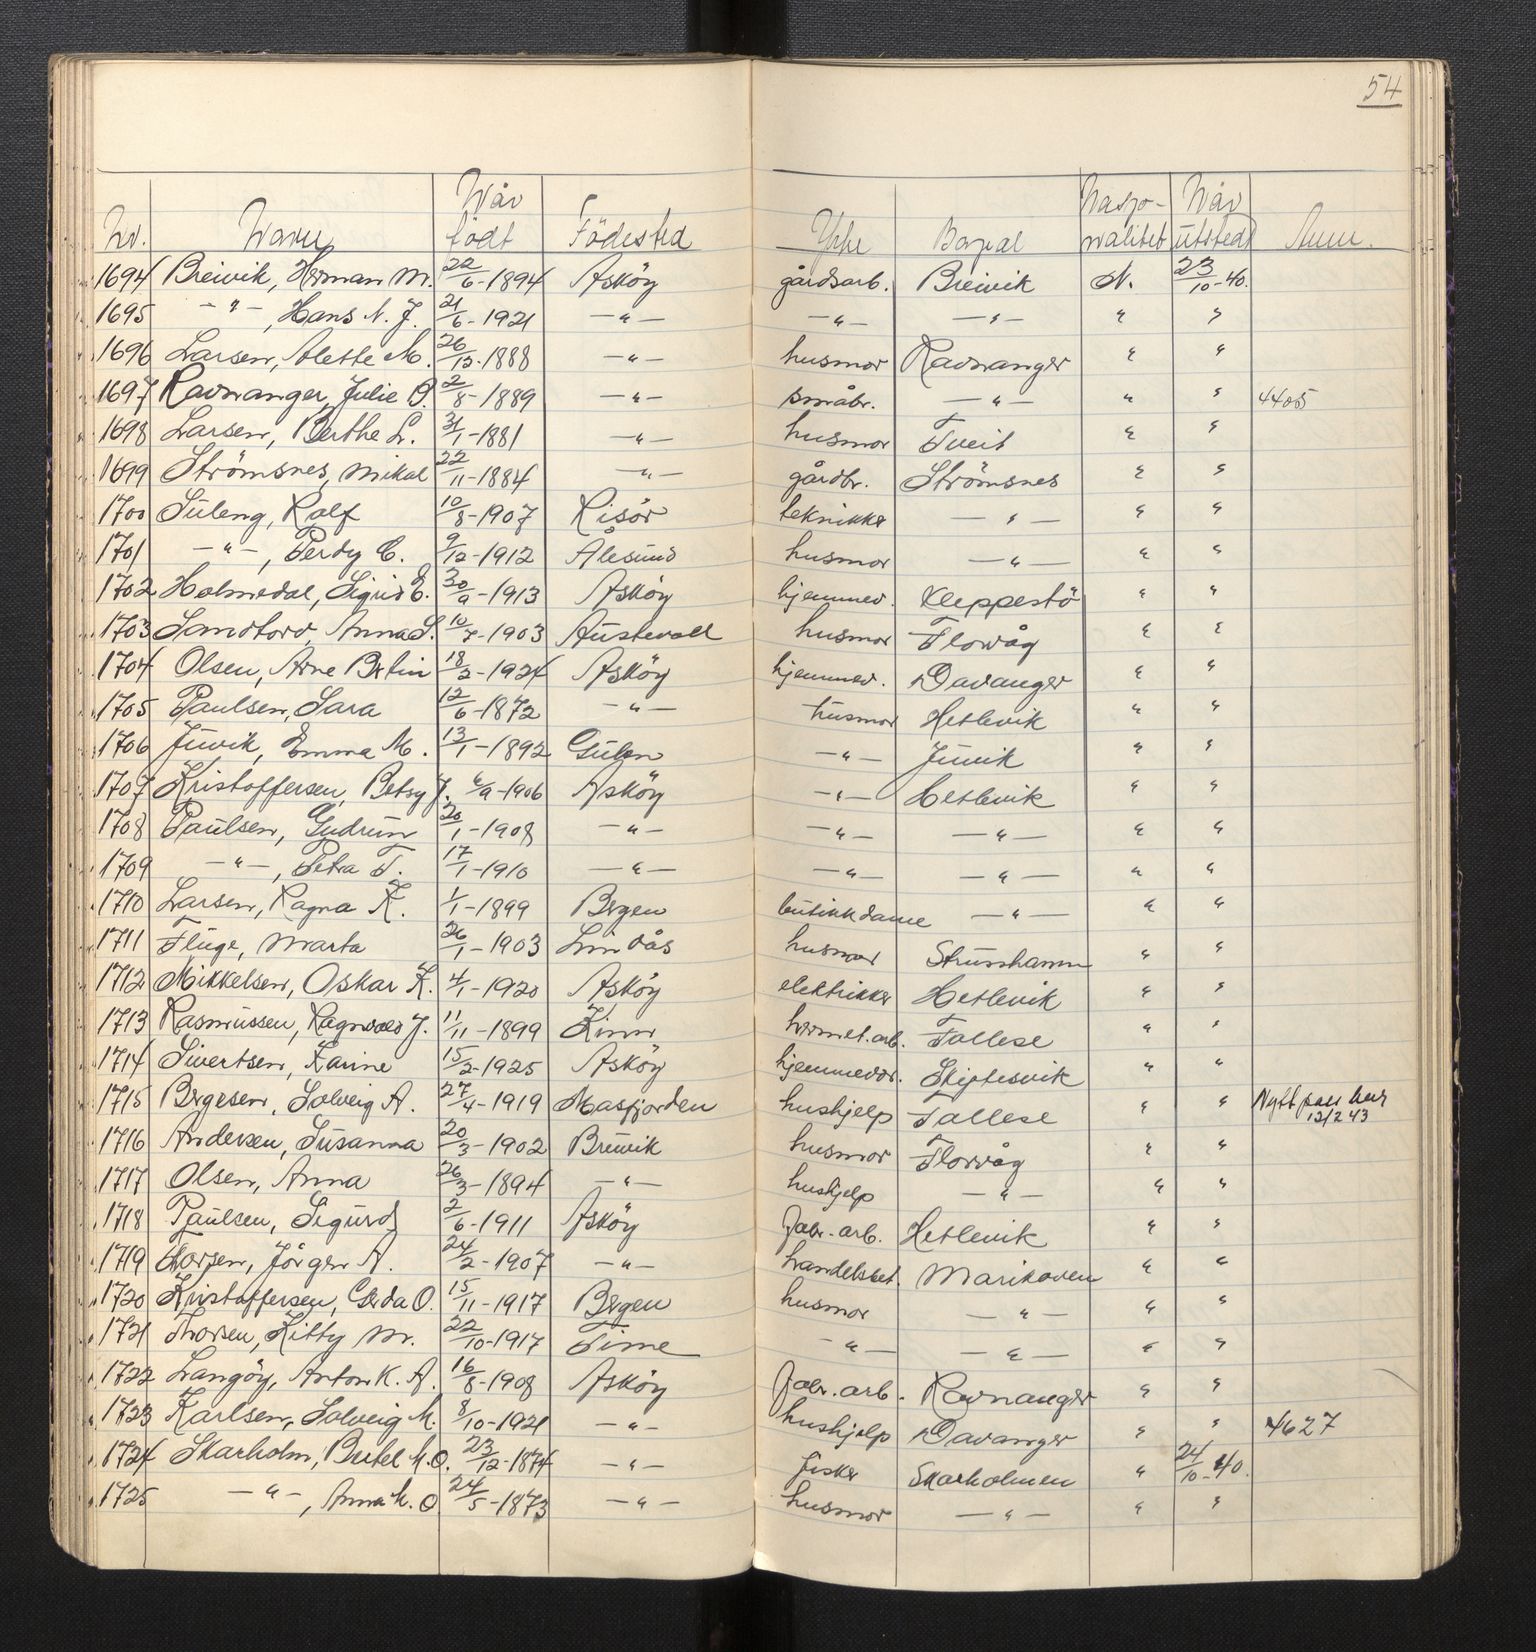 54
Nr. Navn Når född Födested Yrke Bopæl Nasjo-nalitet Når utstedt Anm.
1694 Breivik, Herman M. 22/6-1894 Asköy gårdsarb. Breivik N. 23/10-40.
1695 -"-, Hans N. J. 21/6-1921 -"- -"- -"- " "
1696 Larsen, Alette M. 26/12-1888 -"- husmor Ravnanger " "
1697 Ravnanger, Julie O. 2/8-1889 -"- småbr. -"- " " 4405
1698 Larsen, Berthe L. 31/1-1881 -"- husmor Tveit " "
1699 Strömsnes, Mikal 22/11-1884 -"- gårdbr. Strömsnes " "
1700 Suleng, Rolf 10/8-1907 Risör tekniker -"- " "
1701 -"-, Perdy C. 9/12-1912 Ålesund husmor -"- " "
1702 Holmedal, Sigrid E. 30/9-1913 Asköy hjemmev. Kleppestö " "
1703 Sandtorv, Anna S. 10/7-1903 Austevoll husmor Florvåg " "
1704 Olsen, Arne Bertin 18/2-1924 Asköy hjemmev. Davanger " "
1705 Paulsen, Sara 12/6-1872 -"- husmor Hetlevik " "
1706 Juvik, Emma M. 13/1-1892 Gulen -"- Juvik " "
1707 Kristoffersen, Betsy J. 6/9-1906 Asköy -"- Hetlevik " "
1708 Paulsen, Gudrun 20/1-1908 -"- -"- -"- " "
1709 -"-, Petra T. 17/1-1910 -"- -"- -"- " "
1710 Larsen, Ragna K. 1/1-1899 Bergen butikkdame -"- " "
1711 Fluge, Marta 26/1-1903 Lindås husmor Strusshamn " "
1712 Mikkelsen, Oskar K. 4/1-1920 Asköy elektriker Hetlevik " "
1713 Rasmussen, Ragnvald J. 11/11-1899 Kinn hermet.arb. Follese " "
1714 Sivertsen, Karine 15/2-1925 Asköy hjemmevær. Skiftesvik " "
1715 Bergesen, Solveig A. 27/4-1919 Masfjorden hushjelp Follese " " Nytt pass her 12/2 43
1716 Andersen, Susanna 20/3-1902 Breivik husmor Florvåg " "
1717 Olsen, Anna 26/3-1894 -"- hushjelp -"- " "
1718 Paulsen, Sigurd 2/6-1911 Asköy fabr.arb. Hetlevik " "
1719 Thorsen, Jörgen A. 24/2-1907 -"- handelsbet. Marikoven " "
1720 Kristoffersen, Gerda O. 15/11-1917 Bergen husmor -"- " "
1721 Thorsen, Kitty M. 22/10-1917 Time -"- -"- " "
1722 Langöy, Anton K. A. 16/8-1908 Asköy fabr.arb. Ravnanger " "
1723 Karlsen, Solveig M. 8/10-1921 -"- hushjelp Davanger " " 4627
1724 Skarholm, Bertel M.O. 23/12-1874 -"- fisker Skarholmen " 24/10-40.
1725 -"-, Anna M. O. 24/5-1873 -"- husmor -"- " "